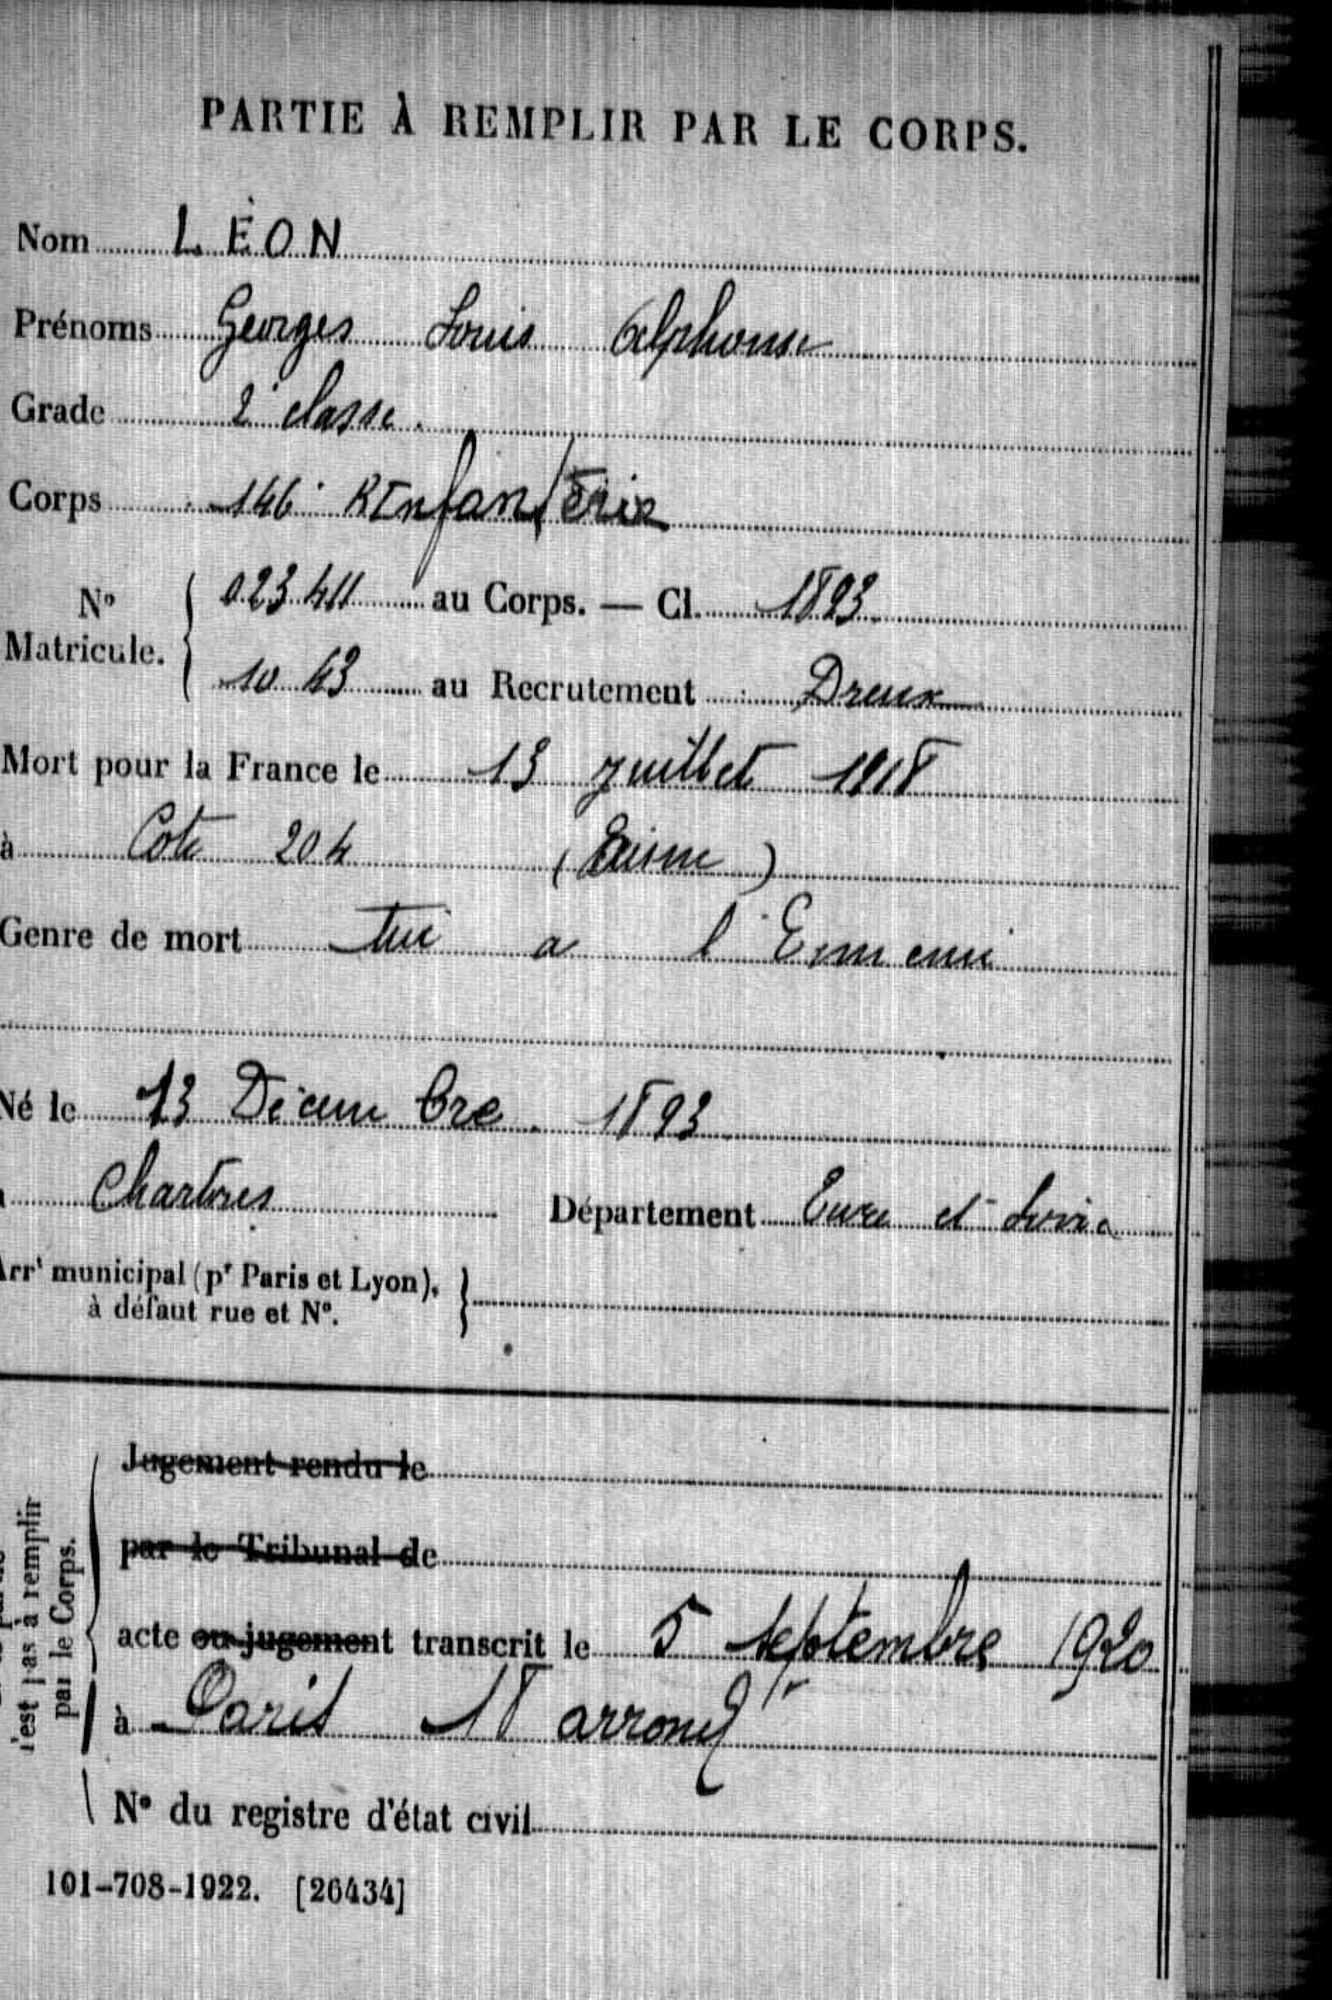 PARTIE À REMPLIR PAR LE CORPS.
Nom LÉON
Prénoms Georges Louis Alphonse
Grade 2e classe.
Corps 146e R Infanterie
N°
Matricule.
023411 au Corps. — Cl. 1893
1043 au Recrutement Dreux
Mort pour la France le 13 juillet 1918
à Cote 204 (Aisne)
Genre de mort tué a l'Ennemi
Né le 13 Décembre. 1893
Chartres Département Eure et Loire
Arrt municipal (pr Paris et Lyon),
à défaut rue et N°.
n'est pas à remplir
par le Corps.
Jugement rendu le
par le Tribunal de
acte ou jugement transcrit le 5 septembre 1920
à Paris 18 arrondt
N° du registre d'état civil
101-708-1922. [26434]